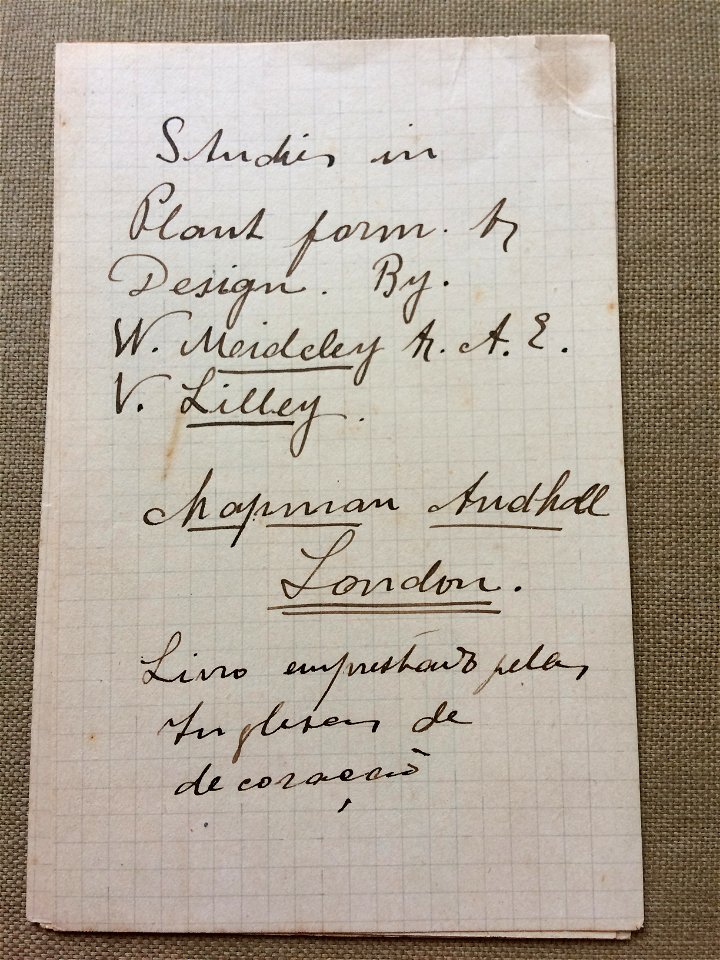 Studies in
Plant form. &
Design. By.
W. Meideley &. A. E.
V. Lilley.
Chapman Andhall
London.
Livro emprestado pelas
Inglesas de
decoração